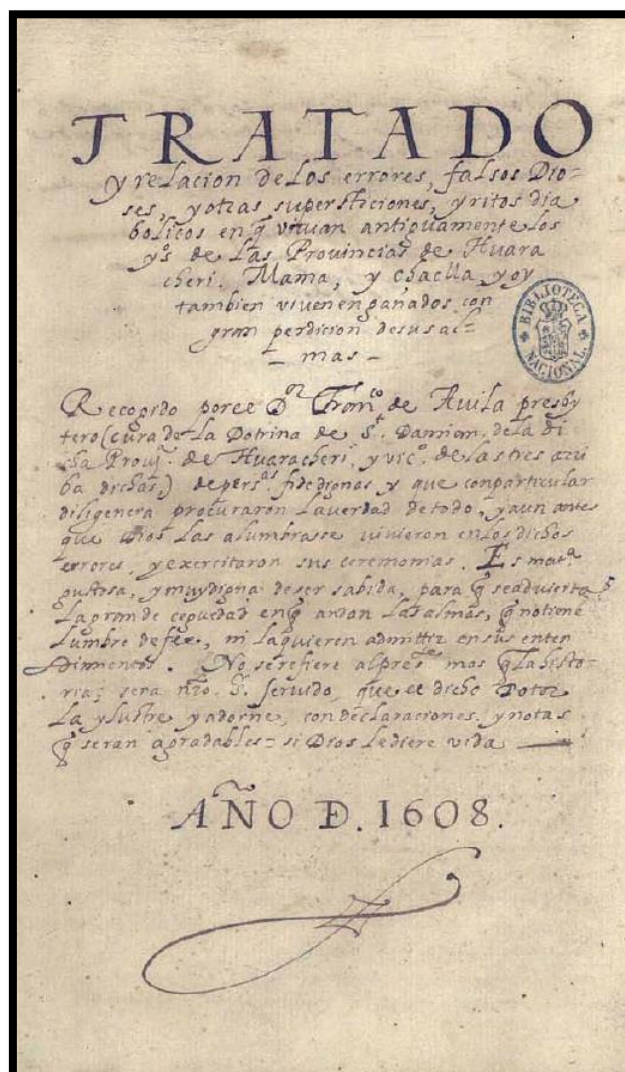 TRATADO
y relacion de los errores, falsos Dio-
ses, y otras supersticiones, y ritos dia
bolicos en q̃ viuian antiguamente los
yo̅s de las Prouincias de Huara
cheri. Mama, y chaclla, y oy
tambien viuen engañados con
gran perdicion de sus al-
- mas -
BIBLIOTECA NACIONAL
Recogido por el Dor Franco de Auila presby
tero (cura de la Dotrina de St. Damian, de la di
cha Prouj. de Huaracheri, y vico. de las tres arri
ba dichas,) de persas. fidedignas y que con particular
diligencia procuraron la verdad de todo, y aun antes
que Dios las alumbrasse vivieron en los dichos
errores, y exercitaron sus ceremonias. Es matra.
gustosa, y muy digna de ser sabida, para q̃ se aduierta
la grande ceguedad en q̃ andan las almas, q̃ no tienẽ
lumbre de fee, ni la quieren admittir en sus enten
dimientos. No se refiere al preste. mas q̃ la histo-
ria; sera nr̃o. Sr. seruido, que el dicho Dotor
la ylustre y adorne, con declaraciones. y notas
q̃ seran agradables - si Dios le diere vida —
AÑO D. 1608.